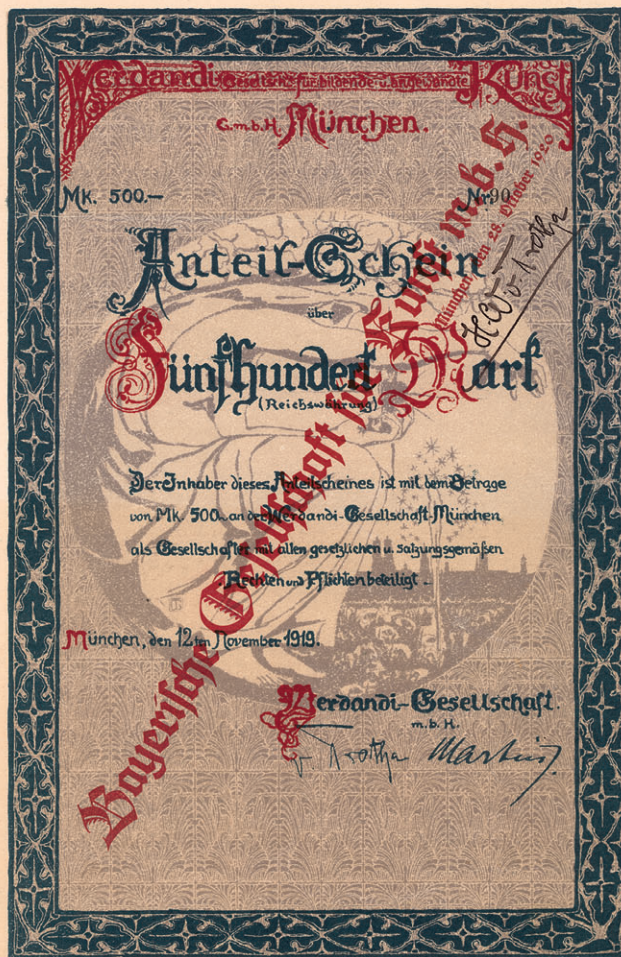 Werdandi Gesellschaft für bildende u. angewandte Kunst
G.m.b.H. München.
Mk. 500.— Nr. 90
Anteil-Schein
über
Fünfhundert Mark
(Reichswährung)
Der Inhaber dieses Anteilscheines ist mit dem Betrage
von Mk. 500.- an der Werdandi-Gesellschaft-München
als Gesellschafter mit allen gesetzlichen u. satzungsgemäßen
Rechten und Pflichten beteiligt.
München, den 12ten November 1919.
Werdandi-Gesellschaft.
m.b.H.
v Trotha Martin
Bayerische Gesellschaft für Kunst m. b. H.
München den 28. Oktober 1920
H. W. v. Trotha